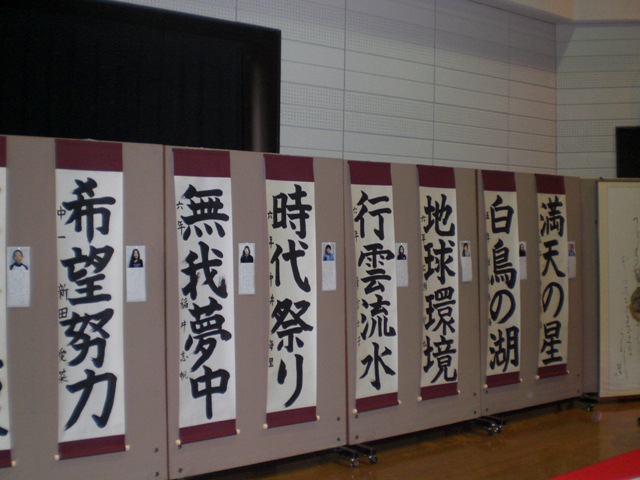 満天の星
白鳥の湖
地球環境
六年
行雲流水
六年
時代祭り
六年
無我夢中
六年
希望努力
中一 新田